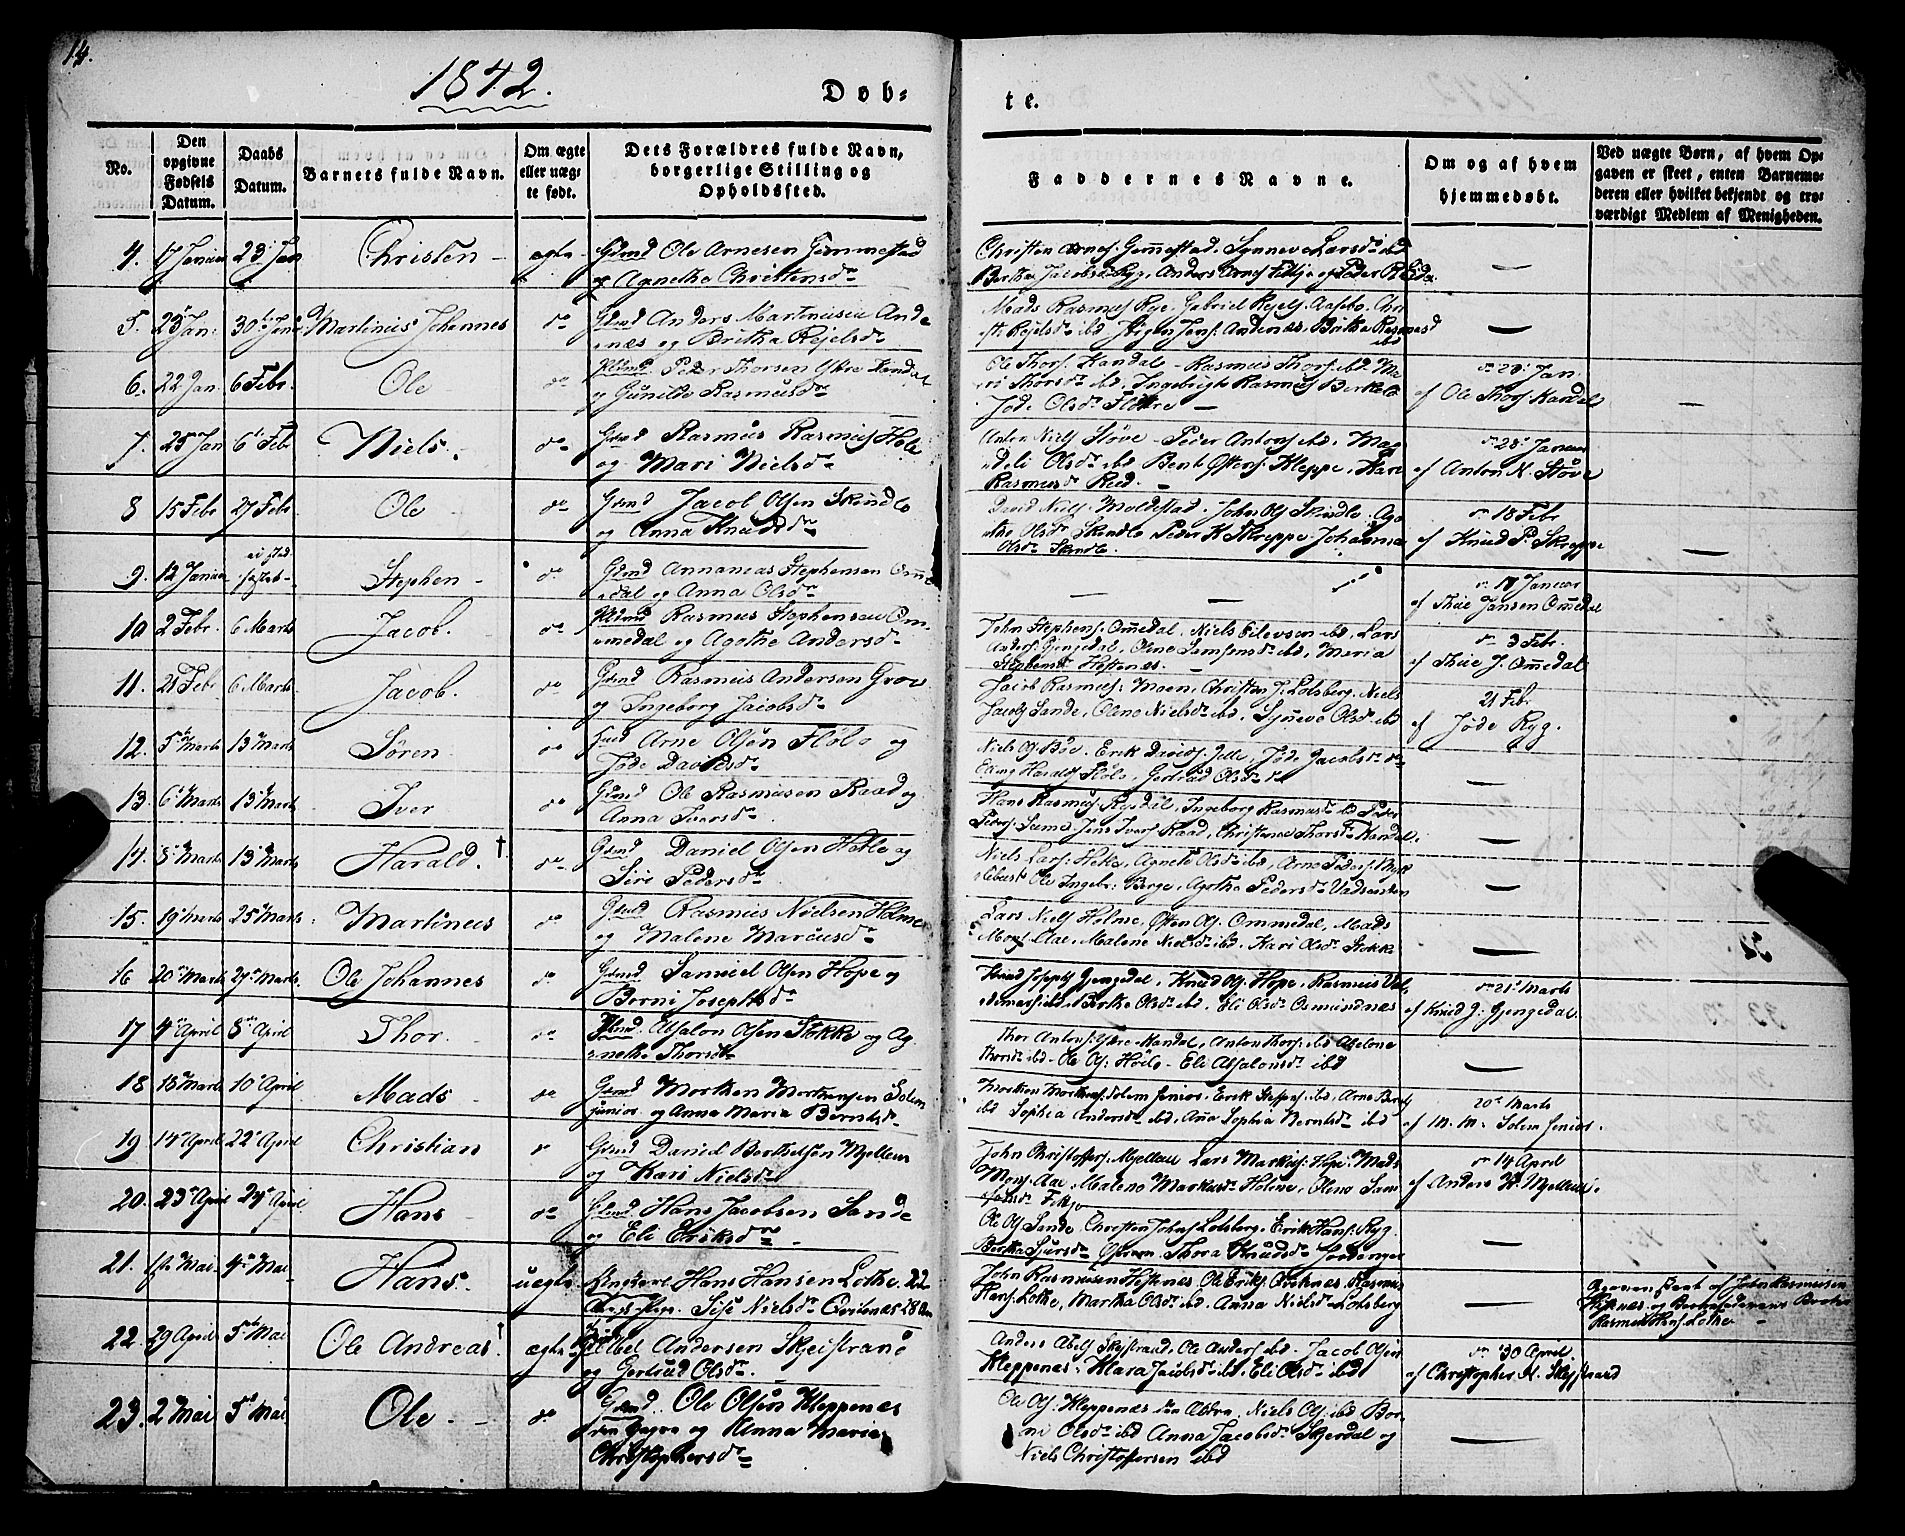 14.
1842.
Døb-
te.
No.
Den opgivne Fødsels Datum.
Daabs Datum.
Barnets fulde Navn.
Om ægte eller uægte født.
Dets Forældres fulde Navn, borgerlige Stilling og Opholdssted.
Faddernes Navne.
Om og af hvem hjemmedøbt.
Ved uægte Børn, af hvem Opgaven er skeet, enten Barnemoderen eller hvilket bekjendt og troværdigt Medlem af Menigheden.
4. 17 Januar 23 Jan Christen ægte Gmd Ole Arnesen Gimmestad
og Agnethe Christensdr
Christen Arnes. Gimmestad, Synneve Larsdr ibd
5. 23 Jan: 30 Jan Martinus Johannes do Gmd Anders Martinusen Ande
næs og Brithe Rejelsdr
Mads Rasmus Rye, Gabriel Rejels. Aasebø
Jens. Andenæs, Brithe Rasmusd
ibd
6. 22 Jan. 6 Febr. Ole do Peder Thorsen Ytre Kandal
og Gunilde Rasmusdr
Ole Thors. Kandal - Rasmus Thors. ibd. Ma
ri Thorsdr ibd, Ingebrigt Rasmus.
Jøde Olsdr Flølre
do 23 Jan.
af Ole Thors. Kandal
7. 25 Jan 6 Febr Niels. do Gmd Rasmus Rasmus. Hole
og Mari Nielsdr
Anton Niels. Støve - Peder Antons. ibd. Mag
deli Olsdr ibd Bent Kleppe, Kari
Rasmusdr Reed.
do 28 Januar
af Anton N. Støve
8 15 Febr 27 Febr Ole do Gmd Jacob Olsen Skindlo
og Anna Knudsdr
David Niels. Moldestad. John Ols. Skindlo. Ago
the Olsdr Skindlo Peder K Skreppe Johanna
Olsdr Skindlo
do 18 Febr
af Knud P. Skreppe
9. 12 Januar Stephen do Gmd Annanias Stephensen Omme
dal og Anna Olsdr
do 17 Januar
af Thue Jansen Omedal
10 2 Febr. 6 Marts Jacob. do Rasmus Stephensen Om
medal og Agothe Andersdr
John Stephens. Omedal, Niels Eilevsen ibd, Lars
Anders. Gjengedal, Oline Samsonsdr ibd, Maria
Hestenæs.
do 3 Febr
af Thue J. Omedal
11. 21 Febr 6 Marts Jacob. do Gmd Rasmus Andersen Grov
og Ingeborg Jacobsdr
Jacob Rasmus. Moen, Christen J. Lotsberg, Niels
Jacobs Sande, Oline Nielsdr ibd, Synneve Olsdr ibd
21 Febr
af Jøde Ryg.
12. 5 Marts 13 Marts Søren do Gmd Arne Olsen Fløto og
Jøde Davidsdr
Niels Ols. Bøe. Erik Jelle, Jøde Jacobsdr do
Elling Haralds. Fløto, Gertrud Olsdr do
13. 6 Marts 13 Marts Iver do Gmd Ole Rasmusen Raad og
Anna Iversdr
Hans Rasmus. Rysdal, Ingeborg Rasmusdr ibd Peder
Peders. Jens Ivers Raad, Christense Thorsdr Kandal.
14. 8 Marts 13 Marts Harald. † do Gmd Daniel Olsen Hetle og
Siri Pedersdr
Niels Lars: Hetle, Agnete Olsdr ibd, Arne Peders. Myk
lebust Ole Ingebr: Berge, Agothe Pedersdr
15. 19 Marts 25 Marts Martinus do Gmd Rasmus Nielsen Holme
og Malene Marcusdr
Lars Niels Holme, Østen Ols. Ommedal, Mads
Mons. Aae, Malene Nielsdr ibd. Kari Olsdr Stokke
16 20 Marts 27 Marts. Ole Johannes do Gmd Samuel Olsen Hope og
Berni Josephsdr
Knud Josephs Gjengedal, Knud Ols. Hope, Rasmus
Berthe Olsdr ibd, Eli Olsdr Osmundnæs
do 21 Marts
af Knud J. Gjengedal.
17 4 April 8 April Thor. do Gmd Absalon Olsen Stokke og Ag
nethe Thorsdr
Thor Antons. Ytre Kandal, Anton Thors. ibd Abelone
Thorsdr ibd - Ole Ols: Eli Absalonsdr ibd
18 13 Marts 10 April Mads do Gmd Morthen Morthensen Solem
junior og Anna Maria Berntsdr
Morthen Morthens. Solem Senior, Erik Steffens. ibd, Arne Bernts
ibd Sophia Andersdr ibd, Ana Sophia Berntsdr ibd
20 Marts
af M. M. Solem Senior.
19 14 April 22 April Christian do Gmd Daniel Berthelsen Myllem
og Kari Nielsdr
John Christoffers. Lars Markus. Hope. Mads
Mons. Aae, Malene Markusdr Holme, Oline Sam
do 14 April
af Anders
20. 23 April 24 April Hans do Gmd Hans Jacobsen Sande
og Eli Eriksdr
Ole Ols Sande, Christen Johns. Lotsberg. Erik Hans. Ryg
Berthe Sjursdr Thora Knudsdr
21. 1ste Mai 4 Mai Hans. uægte Ungkarl Hans Hansen Lothe. 22
Aar Pige Sise Nielsdr Qvitenæs 28 Aar
John Rasmusen Hestenæs, Ole Eriks. Rasmus
Hans. Lothe, Martha Olsdr ibd. Anna Nielsdr Lotsberg
Opgaven skeet af John Rasmusen
Hestnæs og Barnefaderens Broder
Rasmus Hans. Lothe
22. 29 April 5 Mai Ole Andreas † ægte Abel Andersen Skjeistrand
og Gertrud Olsdr.
Anders Abels. Skjestrand, Ole Anders. ibd. Jacob Olsen
Kleppenæs. Klara Jacobsdr ibd. Eli Olsdr ibd
do 30 April
af Christopher A. Skjestrand
23. 2 Mai 5 Mai Ole do Gmd. Ole Olsen Kleppenæs
den yngre og Anna Marie
Christophersdr
Ole Ols. Kleppenæs den Ældre, Niels Ols. ibd Ber
ni Olsdr ibd Anna Jacobsdr Skjerdal og
Niels Christoffersen ibd